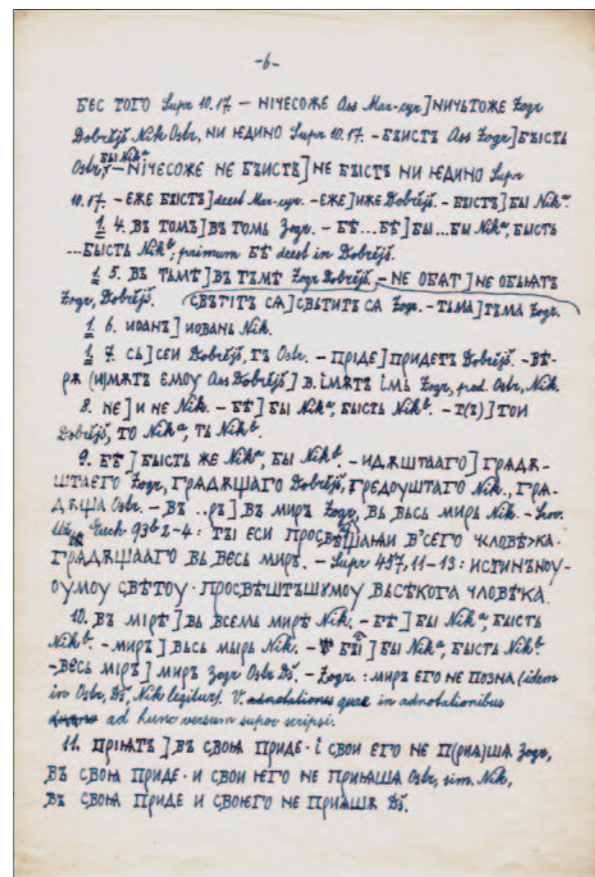 -6-
БЕС ТОГО Supr 10.17 — NIЧЕСОЖЕ Ass Mar-cyr] NИЧЬТОЖЕ Zogr
Dobrějš Nik Ostr, NИ ѤДИNО Supr 10.17. - БЪИСТЪ Ass Zogr] БЫСТЬ
Ostr, БЫ Nikᵃ - NIЧЕСОЖЕ NЕ БЪИСТЪ] NЕ БЫСТЪ NИ ѤДИNО Supr
10.17. - ЕЖЕ БЫСТЪ] deest Mar-cyr. - ЕЖЕ] ИЖЕ Dobrějš. - БЫСТЪ] БЫ Nikᵃ.
1. 4. ВЪ ТОМЪ] ВЪ ТОМЬ Zogr. - БѢ...БѢ] БЫ...БЫ Nikᵃ, БЫСТЬ
...БЫСТЬ Nikᵇ, primum БѢ deest in Dobrějš.
1. 5. ВЪ ТЬМѢ] ВЪ ТЪМѢ Zogr Dobrějš. - NЕ ОБѦТ] NЕ ОБЬѨТЪ
Zogr, Dobrějš. СВЪТІТЪ СѦ] СВЬТИТЪ СѦ Zogr. - ТЬМА] ТЪМА Zogr.
1. 6. ИОАNЪ] ИОВАNЬ Nik.
1. 7. СЬ] СЕИ Dobrějš, ГЪ Ostr. - ПРIДЕ] ПРИДЕТЪ Dobrějš. - ВѢ-
РѪ (И)МѪТЪ ЕМОУ Ass Dobrějš] В. IМѪТЪ IМЬ Zogr, pod. Ostr, Nik.
8. NЕ] И NЕ Nik. - БѢ] БЫ Nikᵃ, БЫСТЬ Nikᵇ. - Т(Ъ)] ТОИ
Dobrějš, ТО Nikᵃ, ТЬ Nikᵇ.
9. БѢ] БЫСТЬ ЖЕ Nikᵃ, БЫ Nikᵇ. - ИДѪШТААГО] ГРѦДѪ-
ШТАЕГО Zogr, ГРѦДѪЩАГО Dobrějš, ГРЕДОУШТАГО Nik., ГРѦ-
ДѪЩА Ostr. - ВЪ ..РЪ] ВЪ МИРЪ Zogr, ВЬ ВЬСЬ МИРЬ Nik. - Srov.
Euch 93ᵇ 2-4: ТЫ ЕСИ ПРОСВѢЩАѨИ В'СЕГО ЧЛОВѢ>КА.
ГРѦДѪЩААГО ВЬ ВЕСЬ МИРЪ. - Supr 487, 11-13: ИСТИNЪNОУ-
ОУМОУ СВѢТОУ · ПРОСВѢШТЪШУМОУ ВЬСѢКОГА ЧЛОВѢКА.
10. ВЪ МIРѢ] ВЬ ВСЕМЬ МИРѢ Nik. - БѢ] БЫ Nikᵃ, БЫСТЬ
Nikᵇ. - МИРЪ] ВЬСЬ МЫРЬ Nik. - БЫ] БЫ Nikᵃ, БЫСТЬ Nikᵇ.
- ВЕСЬ МIРЪ] МИРЪ Zogr Ostr Dš. - Zogr.: МИРЪ ЕГО NЕ ПОЗNА (idem
in Ostr, Dš, Nik legitur). V. adnotationes quae in adnotationibus
ad hunc versum supor scripsi.
11. ПРIѨТЪ] ВЪ СВОѨ ПРИДЕ · I СВОИ ЕГО NЕ П(РИѨ)ШѦ Zogr,
ВЪ СВОѨ ПРИДЕ · И СВОИ ѤГО NЕ ПРИѨШѦ Ostr, sim. Nik,
ВЪ СВОѨ ПРИДЕ И СВОѤГО NЕ ПРИѨШѦ Dš.